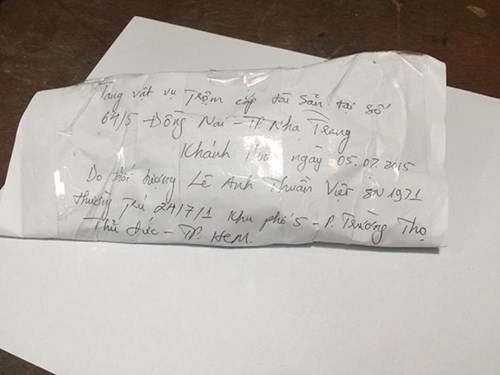 Tang vật vụ Trộm cắp tài sản tại số
64/5 - Đồng Nai - TP. Nha Trang
Khánh Hòa ngày 05.07.2015
Do đối tượng Lê Anh Thuần Việt SN 1971
thường trú 24/7/1 Khu phố 5 - P. Trường Thọ
Thủ Đức - TP. HCM.